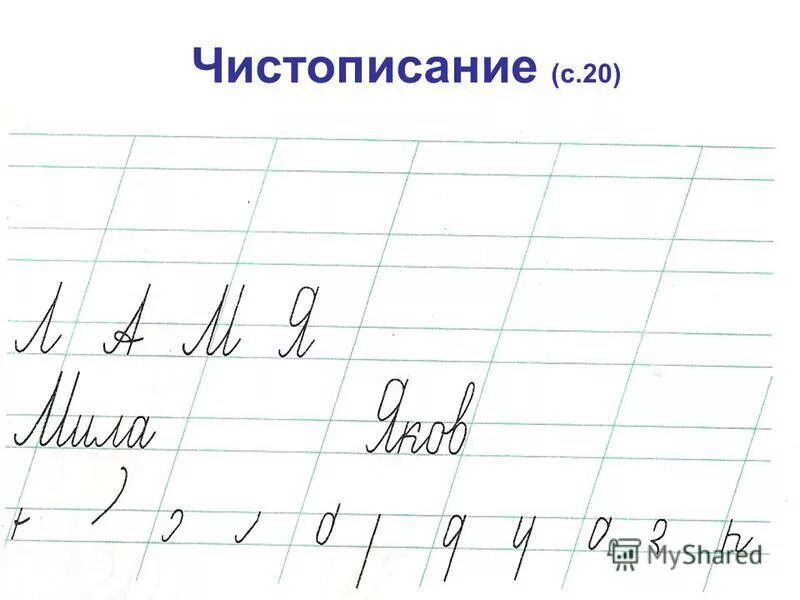 Чистописание (с.20)
Л А М Я
Мила Яков
д у а з п
MyShared